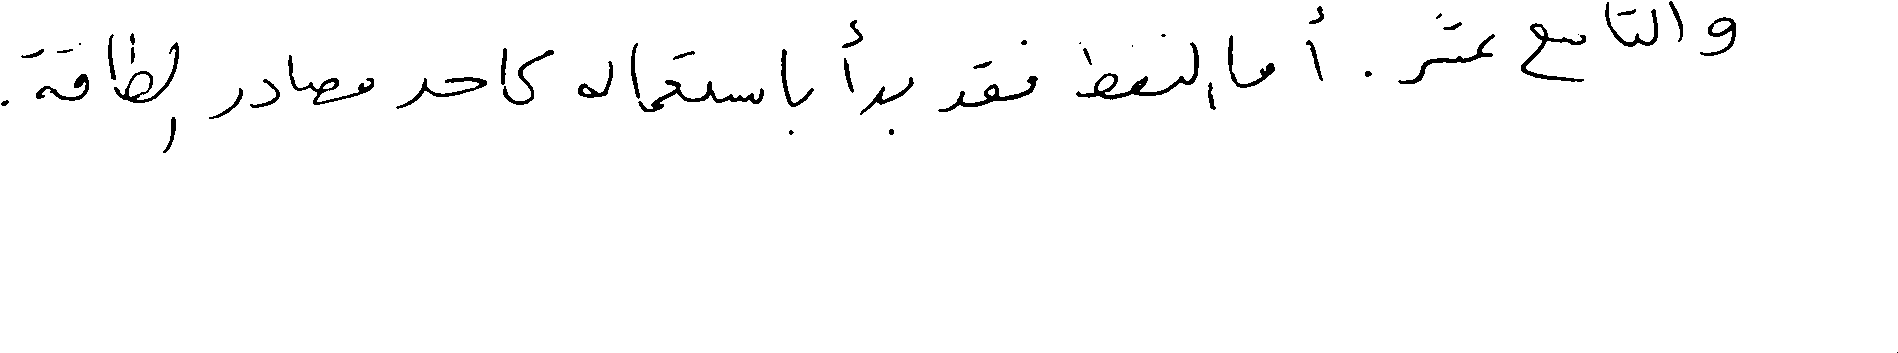 والتاسع عشر. أما النفط فقد بدأ باستعماله كاحد مصادر الطاقة.